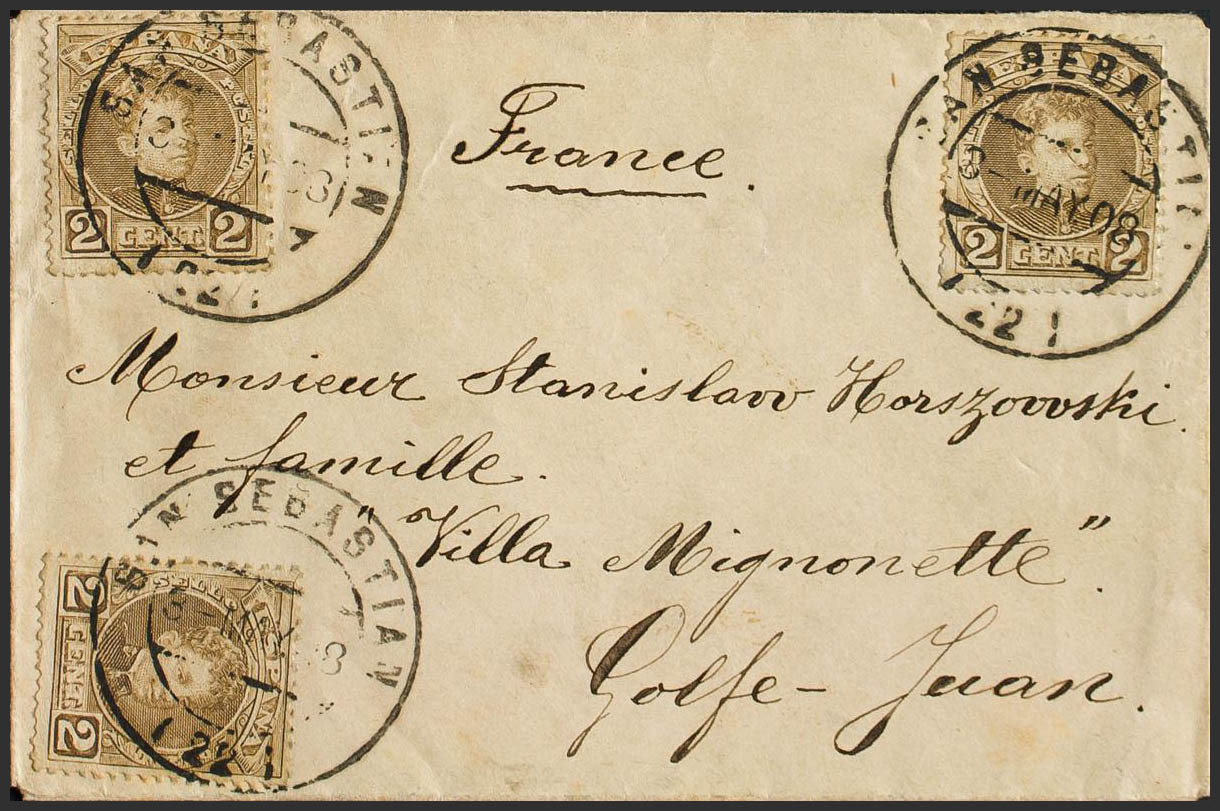 SAN SEBASTIEN
ESPAÑA
2 CENT 2
(22)
France.
SAN SEBASTI
ESPAÑA
MAY 08
2 CENT 2
(22)
Monsieur Stanislaw Horszowski.
et famille.
"Villa Mignonette".
Golfe-Juan.
SAN SEBASTIAN
2 CENT 2
(22)